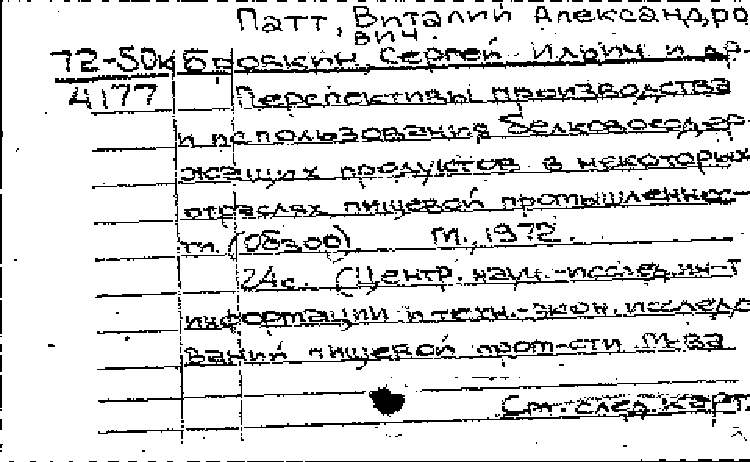 Патт, Виталий Александро
вич.
72-50к Бровкин, Сергей Ильич и др.
4177 Перспективы производства
и использования белковосодер-
жащих продуктов в некоторых
отраслях пищевой промышленнос-
ти. (Обзор). М., 1972.
24с. (Центр. науч.-исслед. ин-т
информации и техн.-экон. исследо
ваний пищевой пром-сти М-ва
См. след. карт.